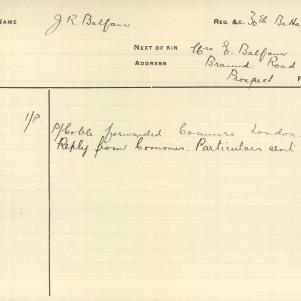 NAME J. R. Balfour REG. &C. 30th Batta
NEXT OF KIN Mrs E. Balfour
ADDRESS Braund Road
Prospect
1/P P/Cable forwarded Commrs London
Reply from Commrs. Particulars sent